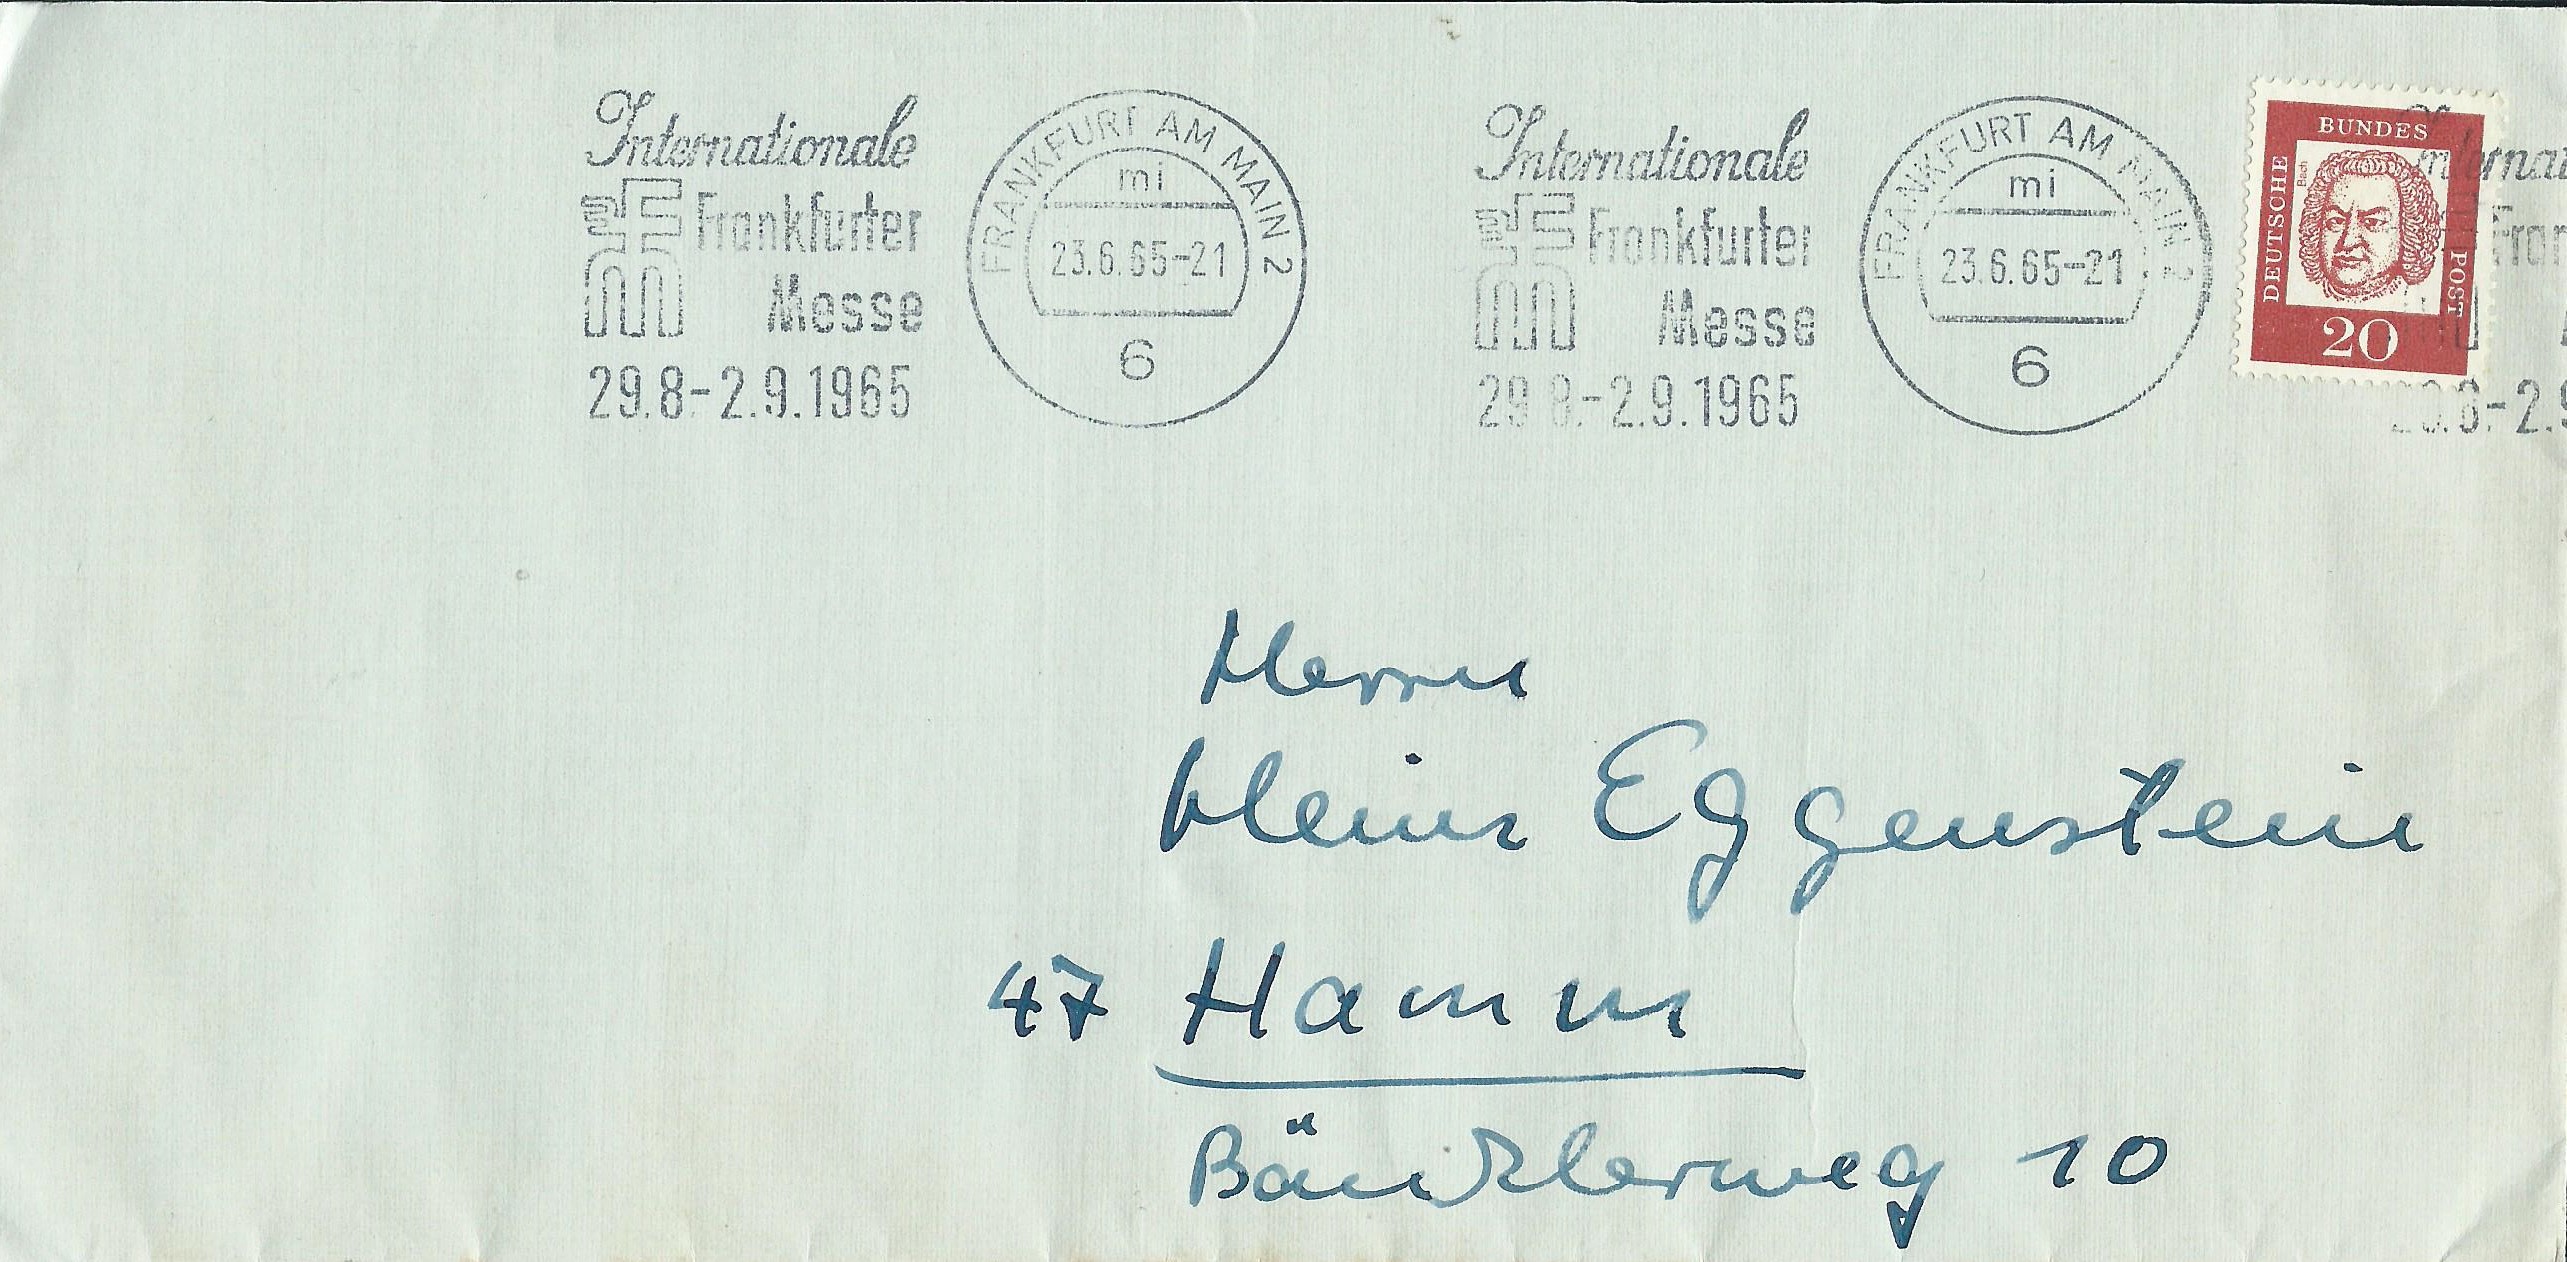 Internationale
Frankfurter
Messe
29.8.-2.9.1965
FRANKFURT AM MAIN 2
mi
23.6.65-21
6
Internationale
Frankfurter
Messe
29.8.-2.9.1965
FRANKFURT AM MAIN 2
mi
23.6.65-21
6
DEUTSCHE
BUNDES
POST
Bach
20
Herrn
Heinz Eggenstein
47 Hamm
10